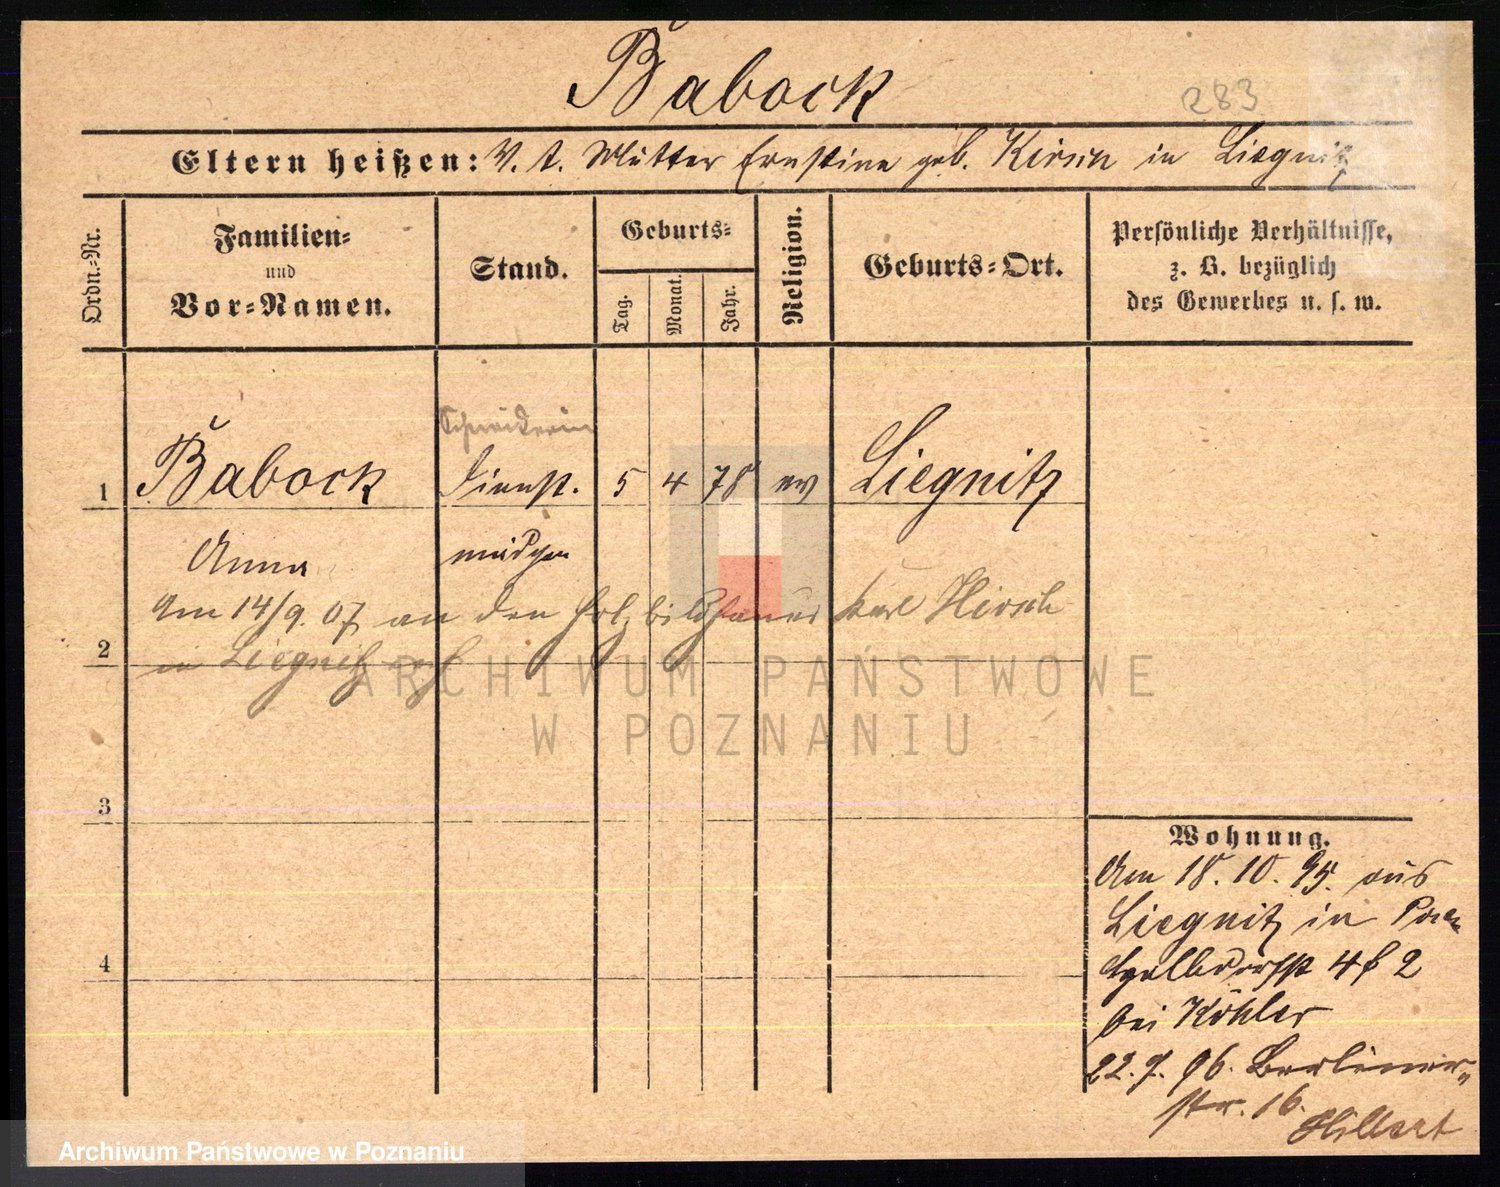 Babock
283
Eltern heißen: V. t. Mutter Ernstine geb. Kirsch in Liegnitz
Ordn.-Nr.
Familien-
und
Vor-Namen.
Stand.
Geburts-
Tag.
Monat.
Jahr.
Religion.
Geburts-Ort.
Persönliche Verhältnisse,
z. B. bezüglich
des Gewerbes u. s. w.
Schneiderin
1 Babock Dienst. 5 4 78 ev Liegnitz
Anna mädchen
Am 14/9. 07 an den Holzbildhauer Karl Hirsch
2
in Liegnitz
ARCHIWUM PAŃSTWOWE
W POZNANIU
3
4
Wohnung.
Am 18. 10. 95. aus
Liegnitz in
4 2
bei Köhler
22. 7. 96. Berliner-
str. 16.
Hillert
Archiwum Państwowe w Poznaniu